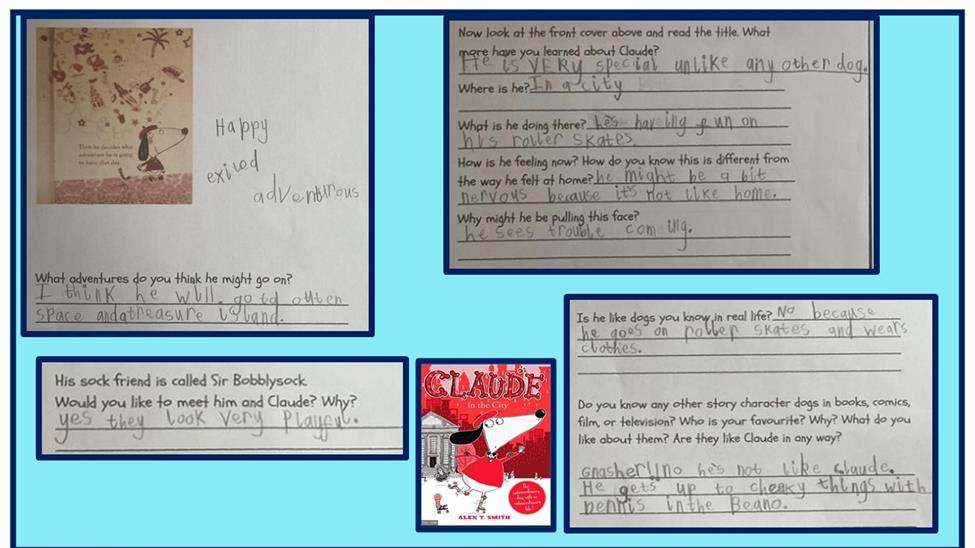 Then he decides what
adventure he is going
to have that day.
Happy
exited
adventurous
What adventures do you think he might go on?
I think he will. go to outer
space and a treasure island.
Now look at the front cover above and read the title. What
more have you learned about Claude?
He is VERY special unlike any other dog.
Where is he? In a city
What is he doing there? he's having fun on
his roller skates.
How is he feeling now? How do you know this is different from
the way he felt at home? he might be a bit
nervous because it's not like home.
Why might he be pulling this face?
he sees trouble coming.
His sock friend is called Sir Bobblysock.
Would you like to meet him and Claude? Why?
yes they look very playful.
CLAUDE
in the City
ALEX T. SMITH
Is he like dogs you know in real life? No because
he goes on roller skates and wears
clothes.
Do you know any other story character dogs in books, comics,
film, or television? Who is your favourite? Why? What do you
like about them? Are they like Claude in any way?
gnasher!! no he's not like claude.
He gets up to cheeky things with
Dennis in the Beano.